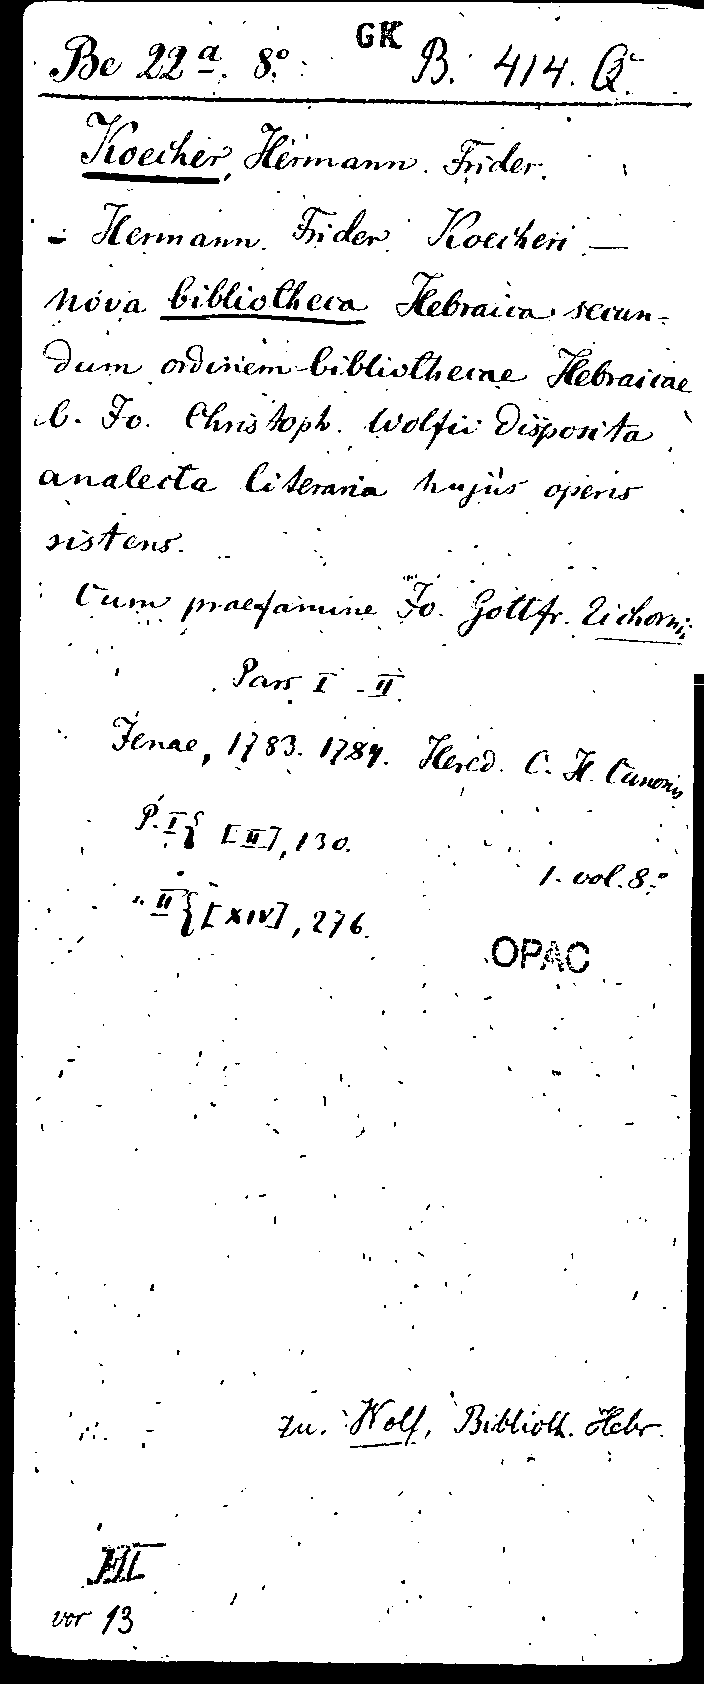 GK
Be 22ᵃ. 8°. B. 414. Q.
Koecher, Hermann. Frider.
- Hermann. Frider. Koecheri —
nova bibliotheca Hebraica secun-
dum ordinem bibliothecae Hebraicae
b. Jo. Christoph. Wolfii disposita
analecta literaria hujus operis
sistens.
Cum praefamine Jo. Gottfr. Eichornii
Pars I - II.
Jenae, 1783. 1784. Hered. C. H. Cunonis
P. I { [II], 130.
1. vol. 8°.
" II { [XIV], 276.
OPAC
zu. Wolf, Biblioth. Hebr.
vor 13